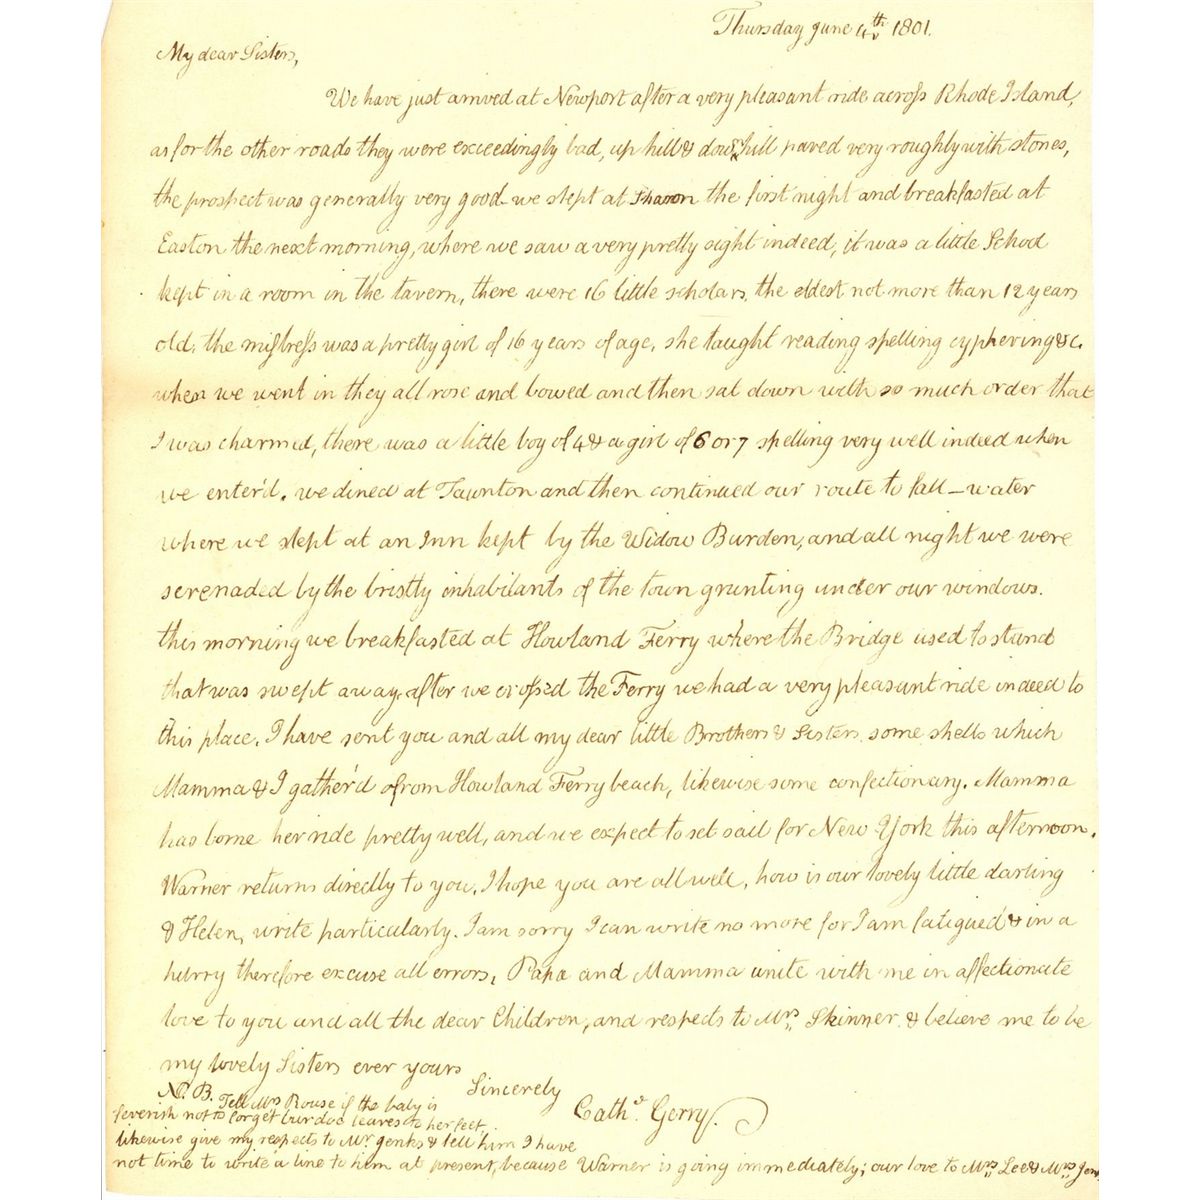 Thursday June 4th 1801.
My dear Sisters,
We have just arrived at Newport after a very pleasant ride across Rhode Island,
as for the other roads they were exceedingly bad, up hill & down hill paved very roughly with stones,
the prospect was generally very good - we slept at Sharon the first night and breakfasted at
Easton the next morning, where we saw a very pretty sight indeed, it was a little School
kept in a room in the tavern, there were 16 little scholars, the eldest not more than 12 years
old, the mistress was a pretty girl of 16 years of age, she taught reading spelling cyphering &c.
when we went in they all rose and bowed and then sat down with so much order that
I was charmed, there was a little boy of 4 & a girl of 6 or 7 spelling very well indeed when
we enter'd. we dined at Taunton and then continued our route to fall-water
where we slept at an Inn kept by the Widow Burden, and all night we were
serenaded by the bristly inhabitants of the town grunting under our windows.
this morning we breakfasted at Howland Ferry where the Bridge used to stand
that was swept away, after we crossed the Ferry we had a very pleasant ride indeed to
this place. I have sent you and all my dear little Brothers & Sisters some shells which
Mamma & I gather'd from Howland Ferry beach, likewise some confectionary. Mamma
has borne her ride pretty well, and we expect to set sail for New York this afternoon.
Warner returns directly to you, I hope you are all well, how is our lovely little darling
& Helen, write particularly. I am sorry I can write no more for I am fatigued & in a
hurry therefore excuse all errors, Papa and Mamma unite with me in affectionate
love to you and all the dear Children, and respects to Mrs. Skinner & believe me to be
my lovely Sisters ever yours
Sincerely
Cathe. Gerry.
N.B. Tell Mrs Rouse if the baby is
feverish not to forget burdoc leaves to her feet,
likewise give my respects to Mr Jenks & tell him I have
not time to write a line to him at present, because Warner is going immediately; our love to Mrs Lee & Mrs